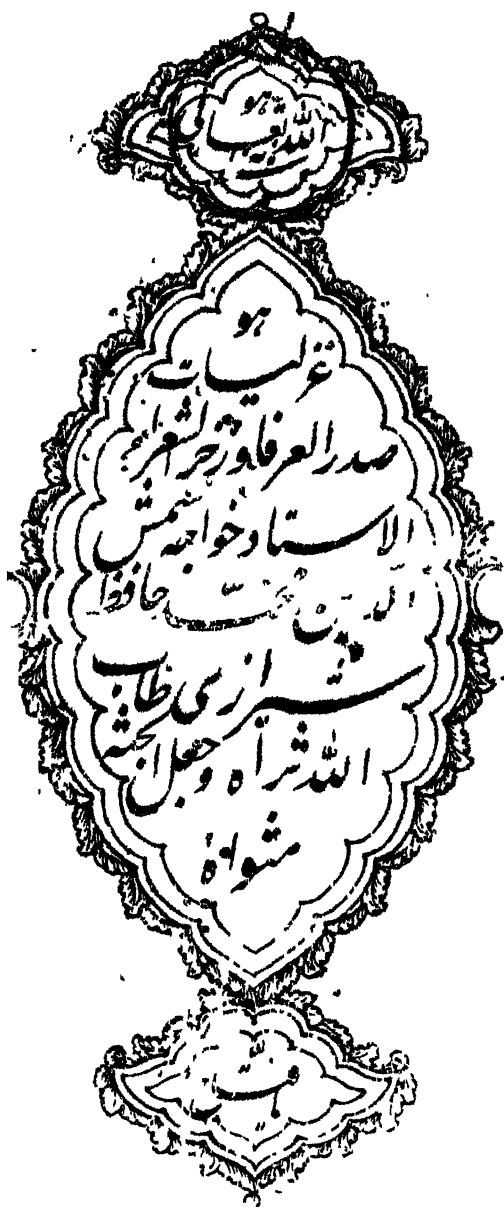 هو
الله تعالی
هو
غزلیات
صدر العرفا و فخر الشعراء
الاستاد خواجه شمس
الدین محمد حافظ
شیرازی طاب
الله ثراه و جعل الجنة
مثواه